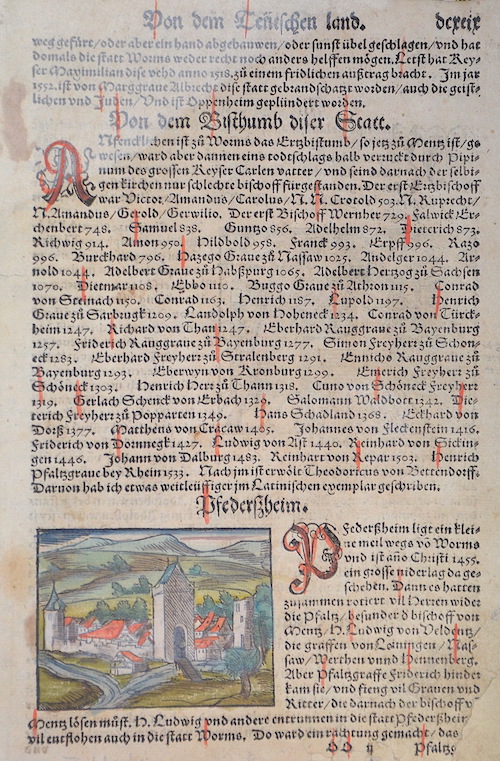 Von dem Teütschen land. dcxcix
weg gefürt/oder aber ein hand abgehauwen/oder sunst übel geschlagen/vnd hat
domals die statt Worms weder recht noch anders helffen mögen. Letst hat Key-
ser Maximilian dise vehd anno 1518. zu einem fridlichen außtrag bracht. Im jar
1552. ist von Marggraue Albrecht dise statt gebrandschatzt worden/auch die geist-
lichen vnd Juden/Vnd ist Oppenheim geplündert worden.
Von dem Bisthumb diser Statt.
ANfencklichen ist zu Worms das Ertzbistumb/so jetz zu Mentz ist/ge
wesen/ward aber dannen eins todtschlags halb verruckt durch Pipi-
num des grossen Keyser Carlen vatter/vnd seind darnach der selbi-
gen kirchen nur schlechte bischoff fürgestanden. Der erst Ertzbischoff
war Victor/Amandus/Carolus/N. N. Crotold 503. N. Ruprecht/
N. Amandus/Gerold/Gerwilio. Der erst Bischoff Wernher 729. Falwick Er-
chenbert 748. Samuel 838. Guntzo 856. Adelhelm 872. Dieterich 873.
Richwig 914. Amon 950. Hildbold 958. Franck 993. Erpff 996. Razo
996. Burckhard 796. Hazego Graue zu Nassaw 1025. Andelger 1044. Ar-
nold 1044. Adelbert Graue zu Habßpurg 1065. Adelbert Hertzog zu Sachsen
1070. Dietmar 1108. Ebbo 1110. Buggo Graue zu Achron 1115. Conrad
von Steinach 1150. Conrad 1163. Henrich 1187. Lupold 1197. Henrich
Graue zu Sarbugk 1209. Landolph von Hoheneck 1234. Conrad von Türck-
heim 1247. Richard von Than 1247. Eberhard Rauggraue zu Bayenburg
1257. Friderich Rauggraue zu Bayenburg 1277. Simon Freyherr zu Schon-
eck 1283. Eberhard Freyherr zu Stralenberg 1291. Ennicho Rauggraue zu
Bayenburg 1293. Eberwyn von Kronburg 1299. Emerich Freyherr zu
Schöneck 1303. Henrich Herr zu Thann 1318. Cuno von Schöneck Freyherr
1319. Gerlach Schenck von Erbach 1329. Salomann Waldbott 1342. Die-
terich Freyherr zu Popparten 1349. Hans Schadland 1368. Eckhard von
Dorß 1377. Mattheus von Cracaw 1405. Johannes von Fleckenstein 1416.
Friderich von Domnegk 1427. Ludwig von Ast 1440. Reinhard von Sickin-
gen 1446. Johann von Dalburg 1483. Reinhart von Repar 1503. Henrich
Pfaltzgraue bey Rhein 1533. Nach jm ist erwölt Theodoricus von Bettendorff.
Darnon hab ich etwas weitleüffiger im Latinischen exemplar geschriben.
Pfederßheim.
PFederßheim ligt ein klei-
ne meil wegs võ Worms
vnd ist año Christi 1455.
ein grosse niderlag da ge-
schehen. Dann es hatten
zusammen rotiert vil Herren wider
die Pfaltz/besunder d bischoff von
Mentz/H. Ludwig von Veldentz/
die graffen von Leiningen/Nas-
saw/Werthen vnnd Hennenberg.
Aber Pfaltzgraffe Friderich hinder
kam sie/vnd fieng vil Grauen vnd
Ritter/die darnach der bischoff v
Mentz lösen müst. H. Ludwig vnd andere entrunnen in die statt Pfederßheim
vil entflohen auch in die statt Worms. Do ward ein rachtung gemacht/das
OO ij Pfaltzg